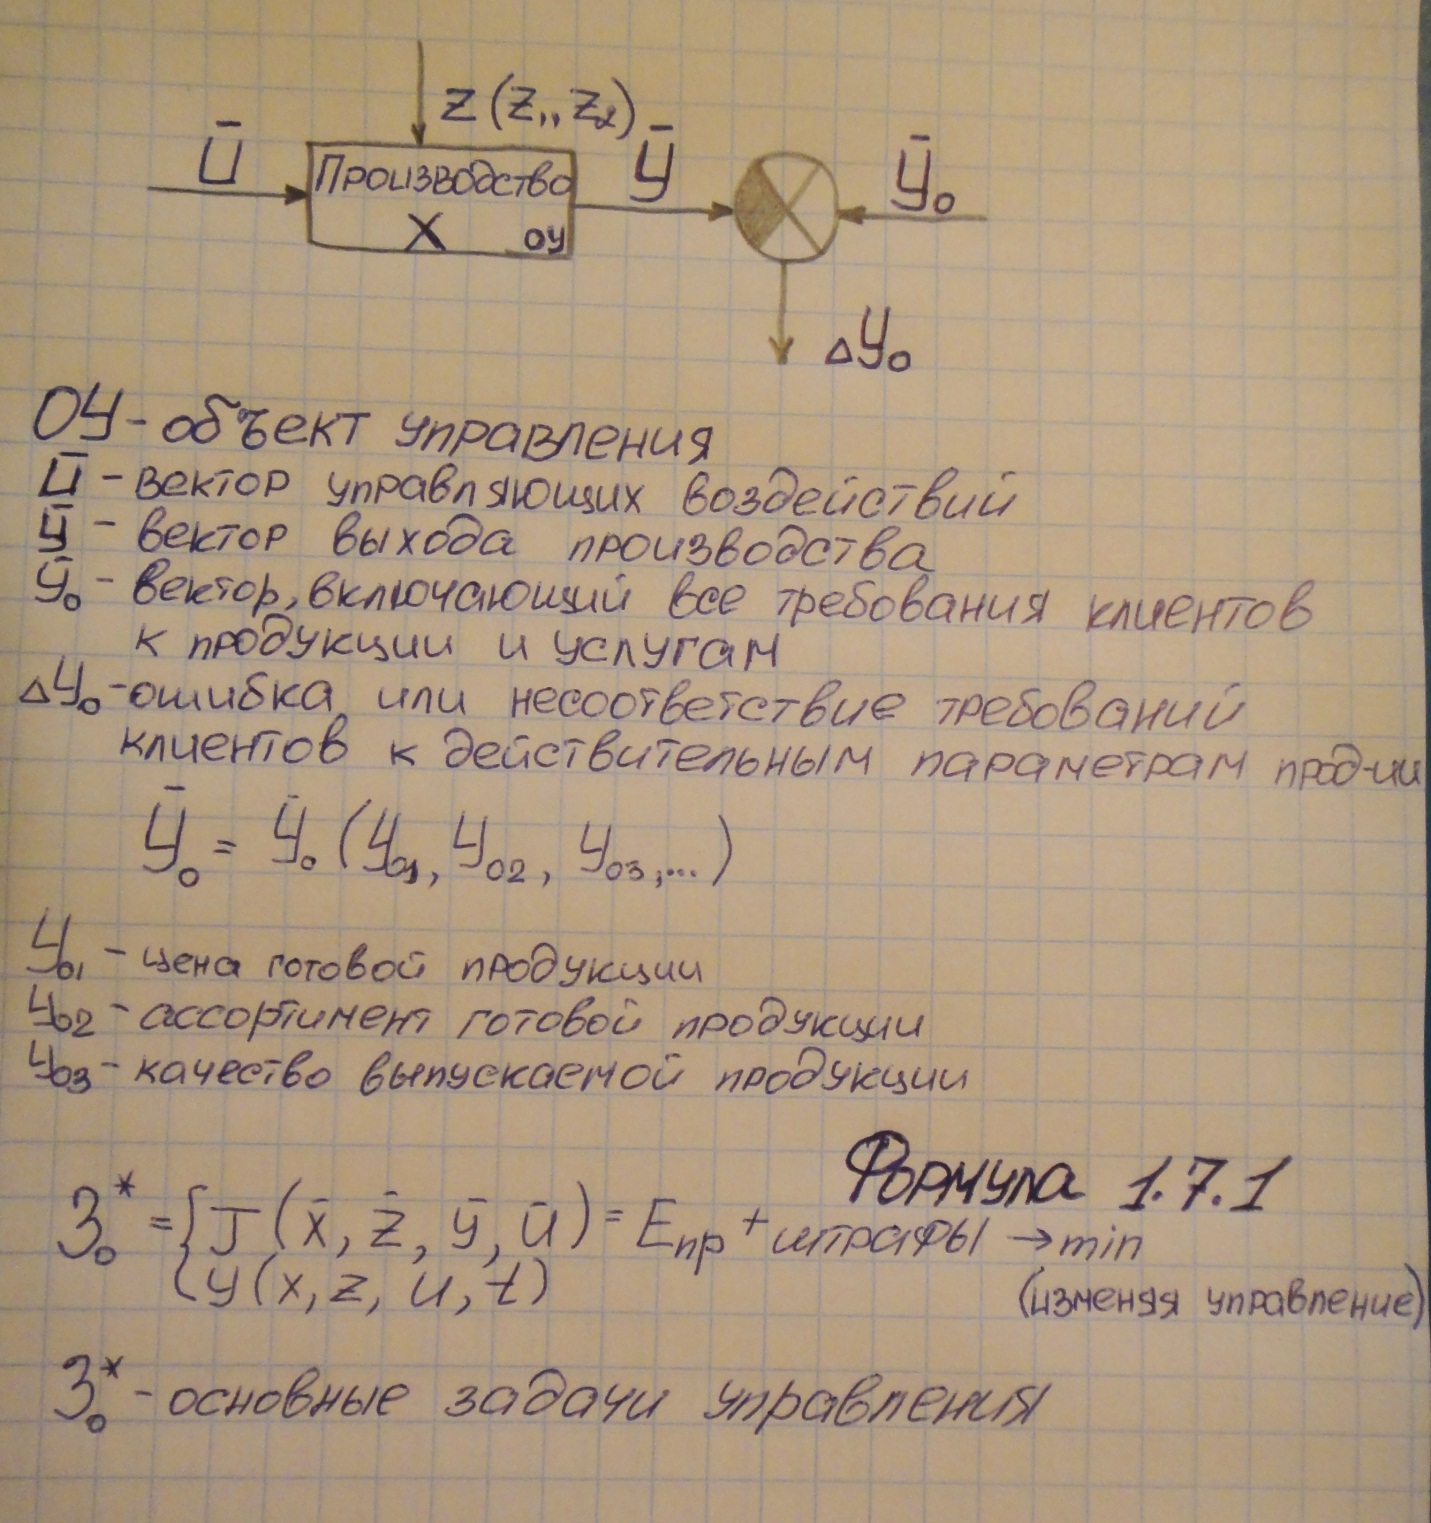 z (z₁, z₂)
Ū
Производство
Ȳ
Ȳ₀
X
ОУ
ΔY₀
ОУ - объект управления
Ū - вектор управляющих воздействий
Ȳ - вектор выхода производства
Ȳ₀ - вектор, включающий все требования клиентов
к продукции и услугам
ΔY₀ - ошибка или несоответствие требований
клиентов к действительным параметрам прод-ии
Ȳ₀ = Ȳ₀ (Y₀₁, Y₀₂, Y₀₃, ...)
Y₀₁ - цена готовой продукции
Y₀₂ - ассортимент готовой продукции
Y₀₃ - качество выпускаемой продукции
Формула 1.7.1
З₀* = { J (x̄, z̄, ȳ, ū) = Eпр + штрафы → min
y (x, z, u, t)
(изменяя управление)
З₀* - основные задачи управления